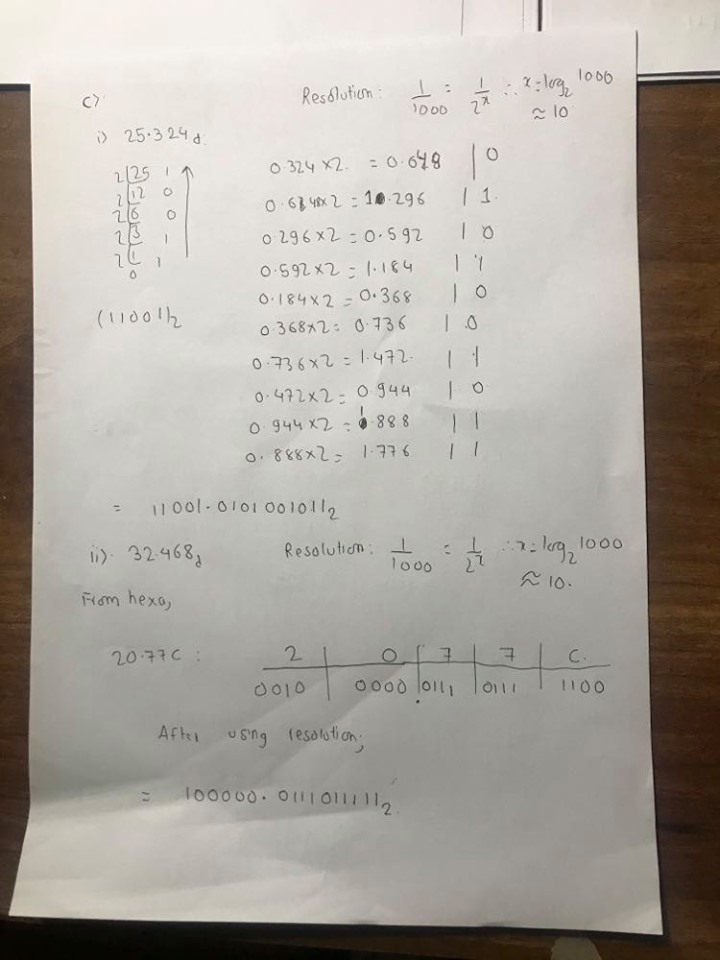 c) Resolution: 1/1000 = 1/2^x ∴ x = log₂ 1000
≈ 10
i) 25.324d.
2 | 25 1
2 | 12 0
2 | 6 0
2 | 3 1
2 | 1 1
0
(11001)₂
0.324 × 2. = 0.648 | 0
0.648 × 2 = 1.296 | 1.
0.296 × 2 = 0.592 | 0
0.592 × 2 = 1.184 | 1
0.184 × 2 = 0.368 | 0
0.368 × 2 = 0.736 | 0
0.736 × 2 = 1.472. | 1
0.472 × 2 = 0.944 | 0
0.944 × 2 = 1.888 | 1
0.888 × 2 = 1.776 | 1
= 11001.0101001011₂
ii). 32.468d Resolution: 1/1000 = 1/2^x ∴ x = log₂ 1000
≈ 10.
From hexa,
20.77C : 2 | 0 | 7 | 7 | C.
0010 | 0000 . | 0111 | 0111 | 1100
After using resolution,
= 100000.0111011111₂